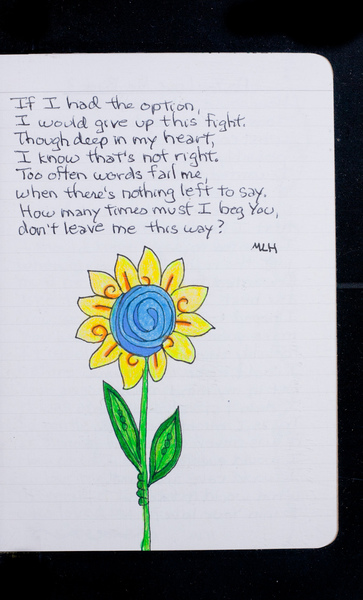 If I had the option,
I would give up this fight.
Though deep in my heart,
I know that's not right.
Too often words fail me,
when there's nothing left to say.
How many times must I beg You,
don't leave me this way?
MLH